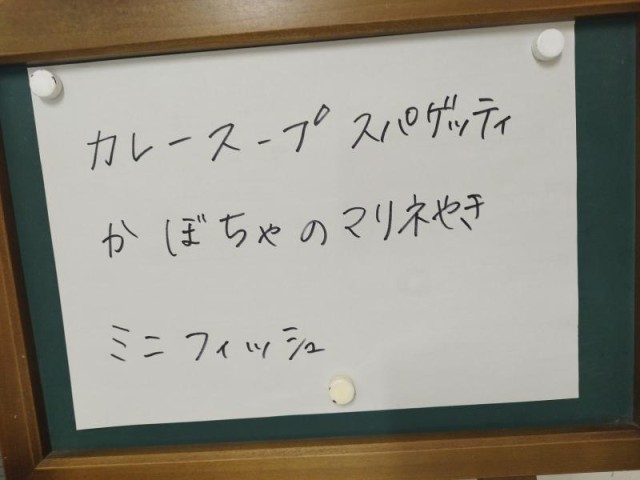 カレースープスパゲッティ
かぼちゃのマリネやき
ミニフィッシュ